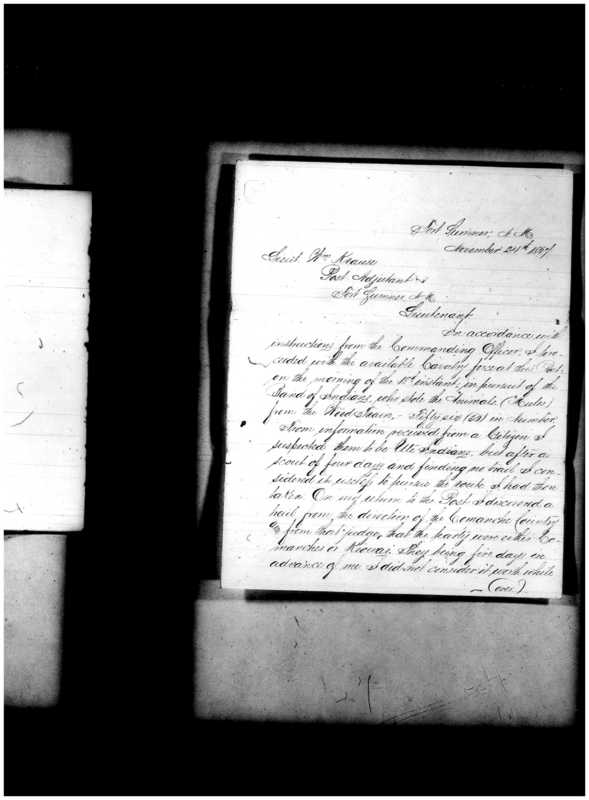 Fort Sumner, N.M.
November 24th 1867
Lieut Wm Krause
Post Adjutant
Fort Sumner N.M.
Lieutenant
In accordance with
instructions from the Commanding Officer, I pro-
ceeded with the available Cavalry force at this Post,
on the morning of the instant, in pursuit of the
Band of Indians, who stole the Animals, (Mules)
from the Wood Train,- Fifty six in number.
From information received from a Citizen I
suspected them to be Ute Indians, but after a
scout of four days and finding no trail I con-
sidered it useless to pursue the route I had then
taken. On my return to the Post I discovered a
trail from the direction of the Comanche Country
from that judge, that the party were either Co-
manches or Kiowas. They being five days in
advance of me I did not consider it worth while
(over)